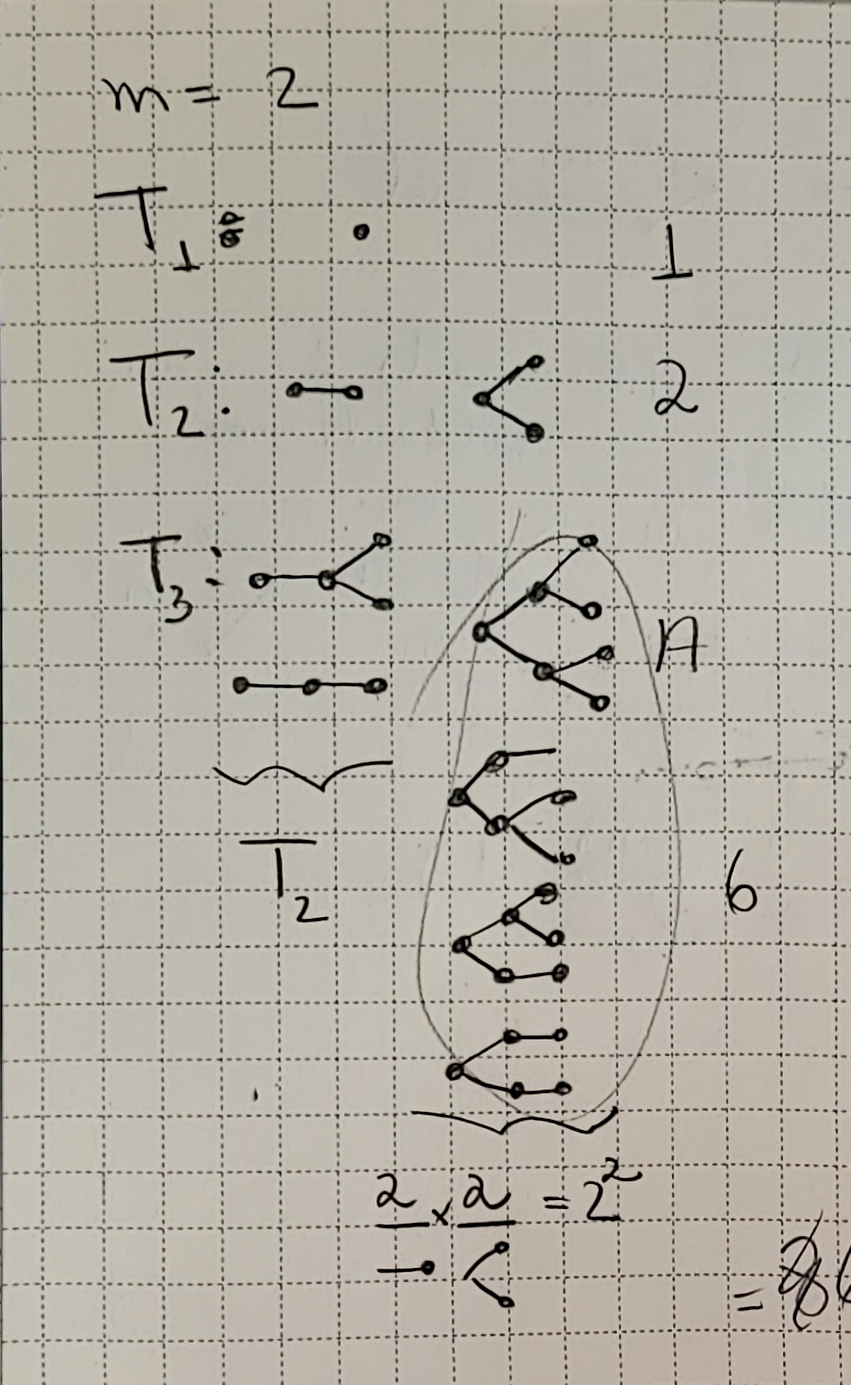 m = 2
T₁: 1
T₂: 2
T₃:
A
T₂
6
2 × 2 = 2²
=